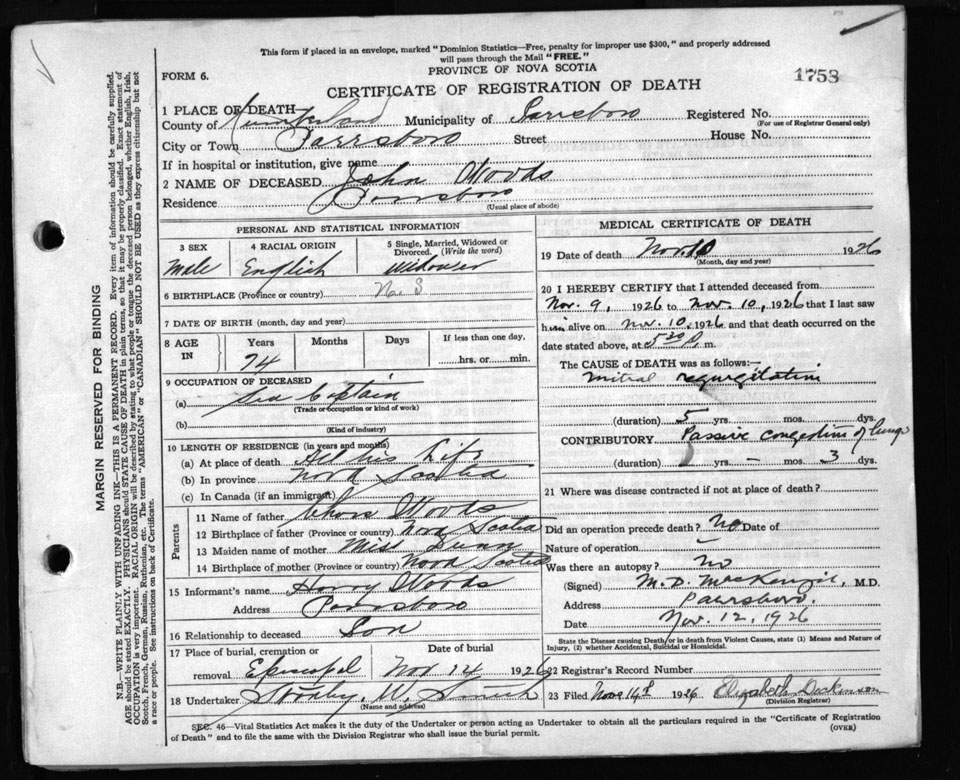 This form if placed in an envelope, marked "Dominion Statistics—Free, penalty for improper use $300," and properly addressed
will pass through the Mail "FREE."
PROVINCE OF NOVA SCOTIA
FORM 6.
1753
CERTIFICATE OF REGISTRATION OF DEATH
1 PLACE OF DEATH
County of Cumberland Municipality of Parrsboro Registered No.
(For use of Registrar General only)
City or Town Parrsboro Street House No.
If in hospital or institution, give name
2 NAME OF DECEASED John Woods
Residence Parrsboro
(Usual place of abode)
PERSONAL AND STATISTICAL INFORMATION
3 SEX 4 RACIAL ORIGIN 5 Single, Married, Widowed or Divorced. (Write the word)
Male English Widower
6 BIRTHPLACE (Province or country) N. S
7 DATE OF BIRTH (month, day and year)
8 AGE IN Years Months Days If less than one day,
74 hrs. or min.
9 OCCUPATION OF DECEASED
(a) Sea Captain
(Trade or occupation or kind of work)
(b)
(Kind of industry)
10 LENGTH OF RESIDENCE (in years and months)
(a) At place of death All his Life
(b) In province Nova Scotia
(c) In Canada (if an immigrant)
Parents
11 Name of father Woods
12 Birthplace of father (Province or country) Nova Scotia
13 Maiden name of mother Miss
14 Birthplace of mother (Province or country) Nova Scotia
15 Informant's name Harry Woods
Address Parrsboro
16 Relationship to deceased Son
17 Place of burial, cremation or removal Date of burial
Episcopal Nov 14 1926
18 Undertaker
(Name and address)
MEDICAL CERTIFICATE OF DEATH
19 Date of death Nov. 10 1926
(Month, day and year)
20 I HEREBY CERTIFY that I attended deceased from
Nov. 9, 1926 to Nov. 10, 1926 that I last saw
him alive on Nov. 10, 1926 and that death occurred on
date stated above, at 5 30 p. m.
The CAUSE OF DEATH was as follows:—
Mitral regurgitation
(duration) 5 yrs. mos. dys.
CONTRIBUTORY Passive congestion of lungs
(duration) yrs. – mos. 3 dys.
21 Where was disease contracted if not at place of death?
Did an operation precede death? No Date of
Nature of operation –
Was there an autopsy? No
(Signed) M. D. MacKenzie, M.D.
Address Parrsboro.
Date Nov. 12, 1926
State the Disease causing Death, or in death from Violent Causes, state (1) Means and Nature of
Injury, (2) whether Accidental, Suicidal or Homicidal.
22 Registrar's Record Number
23 Filed Nov 14th 1926 Elizabeth
(Division Registrar)
SEC. 46—Vital Statistics Act makes it the duty of the Undertaker or person acting as Undertaker to obtain all the particulars required in the "Certificate of Registration
of Death" and to file the same with the Division Registrar who shall issue the burial permit.
(OVER)
MARGIN RESERVED FOR BINDING
N.B.—WRITE PLAINLY WITH UNFADING INK—THIS IS A PERMANENT RECORD. Every item of information should be carefully supplied.
AGE should be stated EXACTLY. PHYSICIANS should STATE CAUSE OF DEATH in plain terms, so that it may be properly classified. Exact statement of
OCCUPATION is very important. RACIAL ORIGIN will be described by stating to what people or tongue the deceased person belonged, whether English, Irish,
Scotch, French, German, Russian, Ruthenian, etc. The terms "AMERICAN" or "CANADIAN" SHOULD NOT BE USED as they express citizenship but not
a race or people. See instructions on back of Certificate.